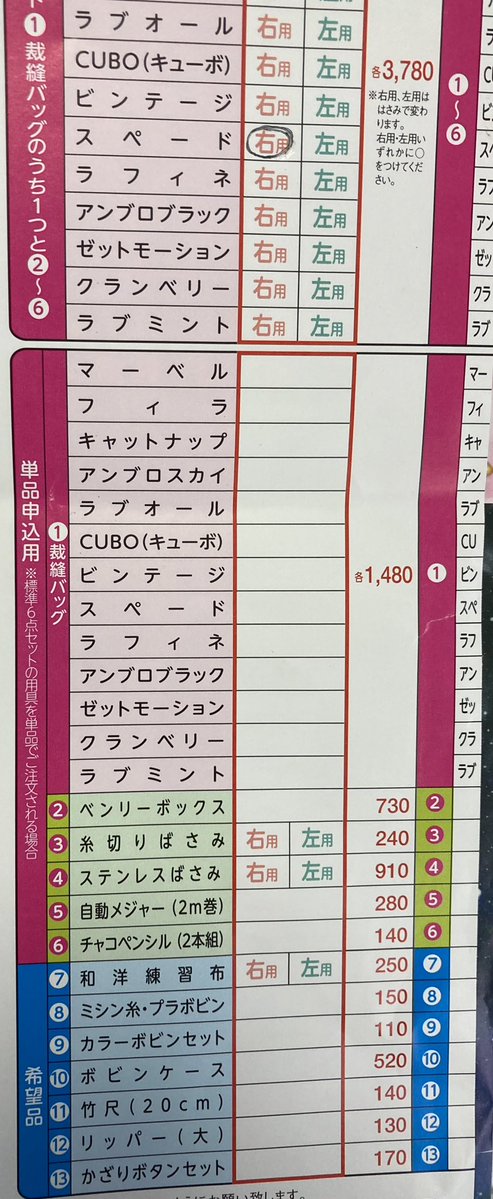 ト❶裁縫バッグのうち1つと❷～❻
ラブオール 右用 左用
CUBO(キューボ) 右用 左用 各3,780
ビンテージ 右用 左用
※右用、左用は
はさみで変わ
ります。
右用・左用い
ずれかに○
をつけてくだ
さい。
スペード 右用 左用
ラフィネ 右用 左用
アンブロブラック 右用 左用
ゼットモーション 右用 左用
クランベリー 右用 左用
ラブミント 右用 左用
❶～❻
ラ
CU
ビ
スペ
ラフ
アン
ゼッ
クラ
ラブ
単品申込用 ※標準6点セットの用具を単品でご注文される場合
❶裁縫バッグ
マーベル
フィラ
キャットナップ
アンブロスカイ
ラブオール
CUBO(キューボ)
ビンテージ 各1,480 ❶
スペード
ラフィネ
アンブロブラック
ゼットモーション
クランベリー
ラブミント
マー
フィ
キャ
アン
ラブ
CU
ビン
スペ
ラフ
アン
ゼッ
クラ
ラブ
❷ ベンリーボックス 730 ❷
❸ 糸切りばさみ 右用 左用 240 ❸
❹ ステンレスばさみ 右用 左用 910 ❹
❺ 自動メジャー(2m巻) 280 ❺
❻ チャコペンシル(2本組) 140 ❻
希望品
❼ 和洋練習布 右用 左用 250 ❼
❽ ミシン糸・プラボビン 150 ❽
❾ カラーボビンセット 110 ❾
❿ ボビンケース 520 ❿
⓫ 竹尺(20cm) 140 ⓫
⓬ リッパー(大) 130 ⓬
⓭ かざりボタンセット 170 ⓭
お願い致します。